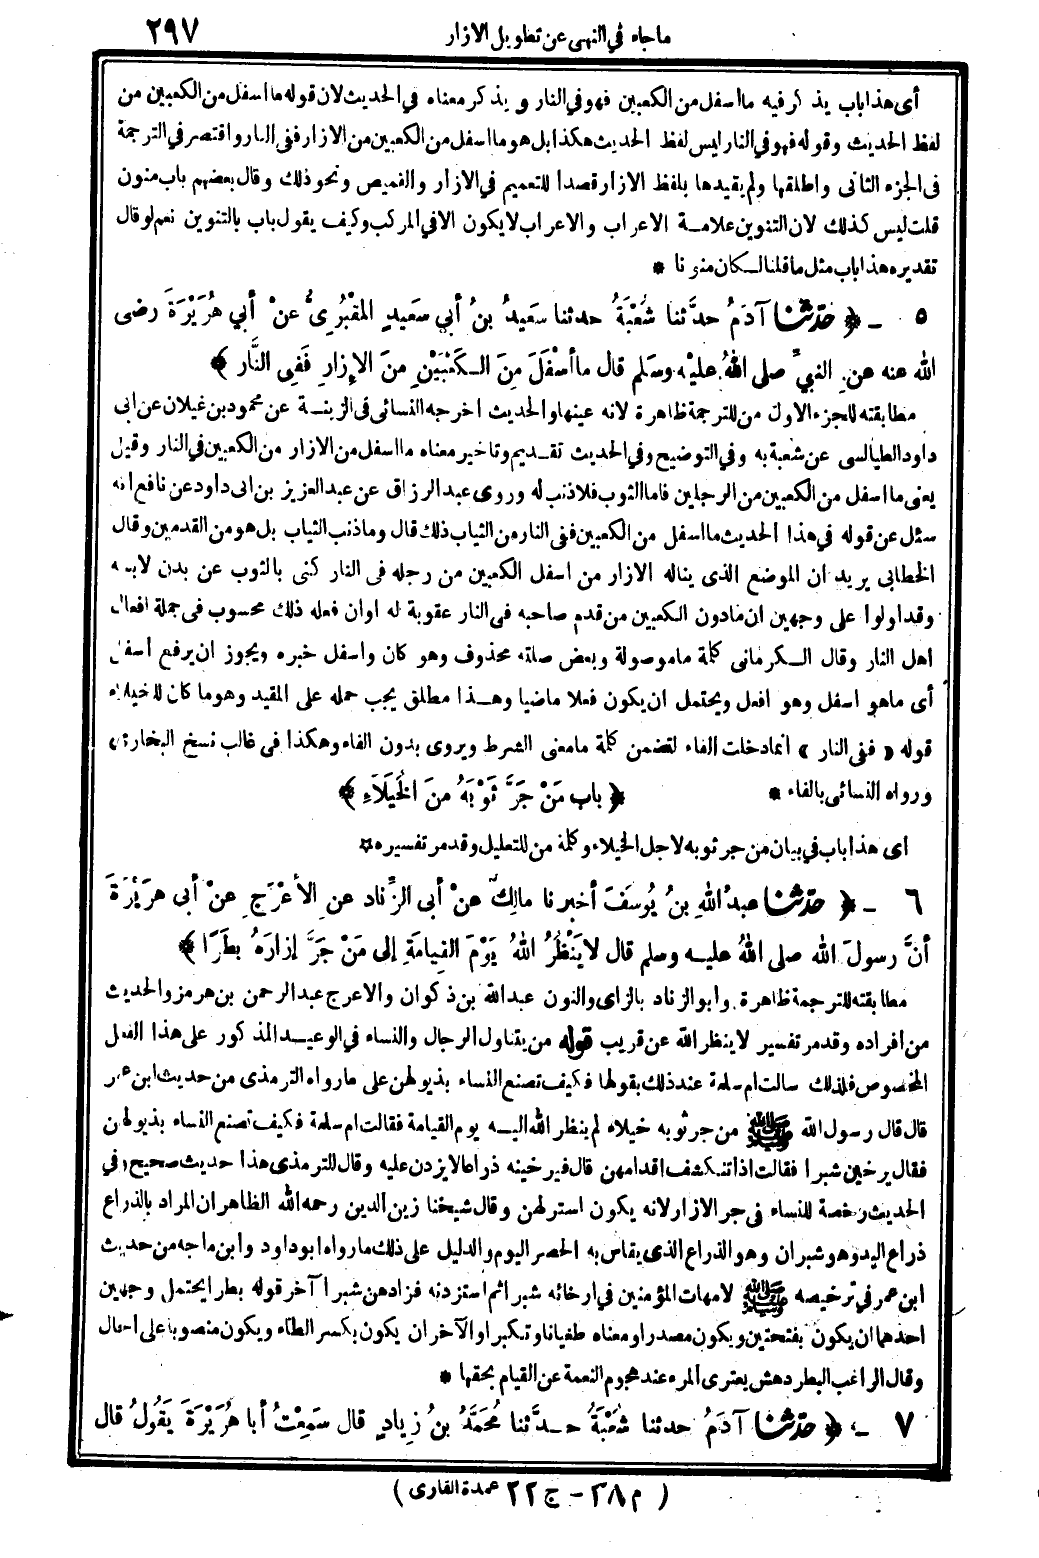 ما جاء في النهى عن تطويل الازار
٢٩٧
أى هذا باب يذكر فيه ما اسفل من الكعبين فهو في النار ويذكر معناه في الحديث لان قوله ما اسفل من الكعبين من
لفظ الحديث وقوله فهو في النار ليس لفظ الحديث هكذا بل هو ما اسفل من الكعبين من الازار ففى النار واقتصر في الترجمة
فى الجزء الثانى واطلقها ولم يقيدها بلفظ الازار قصدا للتعميم في الازار والقميص ونحو ذلك وقال بعضهم باب منون
قلت ليس كذلك لان التنوين علامة الاعراب والاعراب لا يكون الا في المركب وكيف يقول باب بالتنوين نعم لو قال
تقديره هذا باب مثل ما قلنا لكان منونا *
٥ ـ ﴿ حدَّثنا آدَمُ حدَّثنا شُعْبَةُ حدثنا سَعِيدُ بنُ أبي سَعِيدٍ المَقْبُرِىُّ عنْ أبي هُرَيْرَةَ رضى
الله عنه عنِ النبيِّ صلى اللهُ عليْه وسَلم قال ما أسْفَلَ مِنَ الـكَعْبَيْنِ مِنَ الإزارِ فَفِى النَّارِ ﴾
مطابقته للجزء الاول من للترجمة ظاهرة لانه عينها والحديث اخرجه النسائى فى الزينة عن محمود بن غيلان عن ابى
داود الطيالسى عن شعبة به وفي التوضيح وفي الحديث تقديم وتاخير معناه ما اسفل من الازار من الكعبين في النار وقيل
يعنى ما اسفل من الكعبين من الرجلين فاما الثوب فلا ذنب له وروى عبد الرزاق عن عبد العزيز بن ابى داود عن نافع انه
سئل عن قوله في هذا الحديث ما اسفل من الكعبين ففى النار من الثياب ذلك قال وما ذنب الثياب بل هو من القدمين وقال
الخطابى يريد ان الموضع الذى يناله الازار من اسفل الكعبين من رجله فى النار كنى بالثوب عن بدن لابسه
وقد اولوا على وجهين ان ما دون الكعبين من قدم صاحبه فى النار عقوبة له او ان فعله ذلك محسوب فى جملة افعال
اهل النار وقال الـكرمانى كلمة ما موصولة وبعض صلته محذوف وهو كان واسفل خبره ويجوز ان يرفع اسفل
أى ما هو اسفل وهو افعل ويحتمل ان يكون فعلا ماضيا وهذا مطلق يجب حمله على المقيد وهو ما كان للخيلاء
قوله « ففى النار » انما دخلت الفاء لتضمن كلمة ما معنى الشرط ويروى بدون الفاء وهكذا فى غالب نسخ البخارى
ورواه النسائى بالفاء *
﴿ باب مَنْ جَرَّ ثَوْبَهُ منَ الخُيَلَاءِ ﴾
اى هذا باب في بيان من جر ثوبه لاجل الخيلاء وكلمة من للتعليل وقد مر تفسيره *
٦ ـ ﴿ حدَّثنا عبدُ اللهِ بنُ يُوسُفَ أخبرنا مالِكٌ عنْ أبى الزِّناد عنِ الأعْرَجِ عنْ أبى هرَيْرَةَ
أنَّ رسولَ الله صلى اللهُ عليه وسلم قال لا يَنْظُرُ اللهُ يَوْمَ القِيامَةِ إلى مَنْ جَرَّ إزارَهُ بطَرًا ﴾
مطابقته للترجمة ظاهرة. وابو الزناد بالزاى والنون عبد الله بن ذكوان والاعرج عبد الرحمن بن هرمز والحديث
من افراده وقد مر تفسير لا ينظر الله عن قريب قوله من يتناول الرجال والنساء في الوعيد المذكور على هذا الفعل
المخصوص فلذلك سالت ام سلمة عند ذلك بقولها فكيف تصنع النساء بذيولهن على ما رواه الترمذى من حديث ابن عمر
قال قال رسول الله ﷺ من جر ثوبه خيلاء لم ينظر الله اليه يوم القيامة فقالت ام سلمة فكيف تصنع النساء بذيولهن
فقال يرخين شبرا فقالت اذا تنكشف اقدامهن قال فيرخينه ذراعا لا يزدن عليه وقال الترمذى هذا حديث صحيح وفي
الحديث رخصة للنساء فى جر الازار لانه يكون استر لهن وقال شيخنا زين الدين رحمه الله الظاهر ان المراد بالذراع
ذراع اليد وهو شبران وهو الذراع الذى يقاس به الحصر اليوم والدليل على ذلك ما رواه ابو داود وابن ماجه من حديث
ابن عمر في ترخيصه ﷺ لامهات المؤمنين في ارخائه شبرا ثم استزدنه فزادهن شبرا آخر قوله بطرا يحتمل وجهين
احدهما ان يكون بفتحتين ويكون مصدرا ومعناه طغيانا وتكبرا والآخر ان يكون بكسر الطاء ويكون منصوبا على الحال
وقال الراغب البطر دهش يعترى المرء عند هجوم النعمة عن القيام بحقها *
٧ ـ ﴿ حدَّثنا آدَمُ حدثنا شُعْبَةُ حدَّثنا مُحَمَّدُ بنُ زِيادٍ قال سَمِعْتُ أبا هُرَيْرَةَ يَقُولُ قال
( م ٣٨ – ج ٢٢ عمدة القارى )